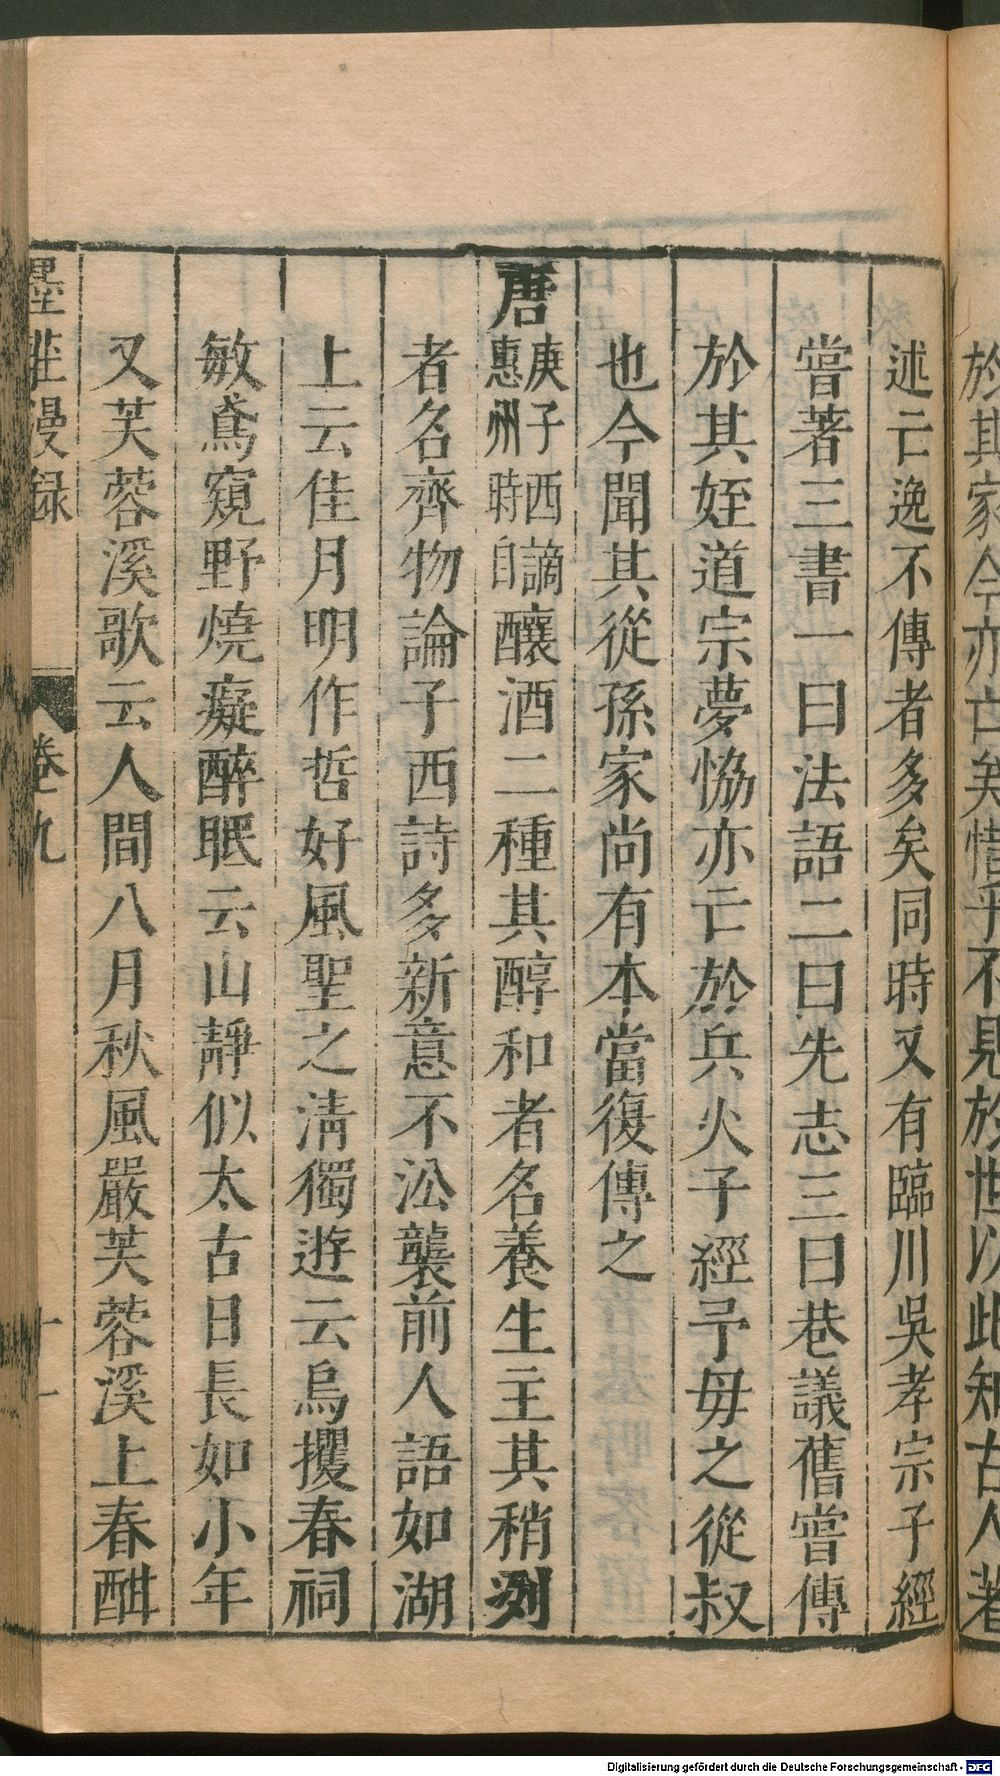 於其家今亦亡矣惜乎不見於世以此知古人著
述亡逸不傳者多矣同時又有臨川吳孝宗子經
嘗著三書一曰法語二曰先志三曰巷議舊嘗傳
於其姪道宗夢協亦亡於兵火子經予毋之從叔
也今聞其從孫家尚有本當復傳之
唐庚子西謫惠州時自釀酒二種其醇和者名養生主其稍冽
者名齊物論子西詩多新意不㳂襲前人語如湖
上云佳月明作哲好風聖之清獨遊云烏攫春祠
敏鳶窺野燒癡醉眠云山靜似太古日長如小年
又芙蓉溪歌云人間八月秋風嚴芙蓉溪上春酣
墨莊漫録 卷九 十一
Digitalisierung gefördert durch die Deutsche Forschungsgemeinschaft - DFG